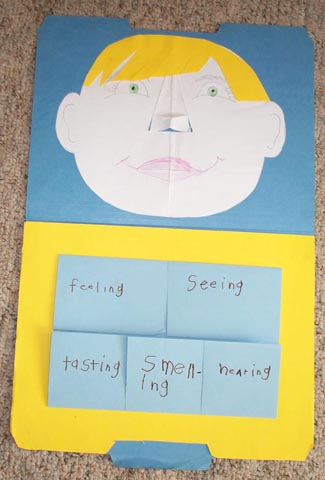 feeling
Seeing
tasting
Smell-
ing
hearing